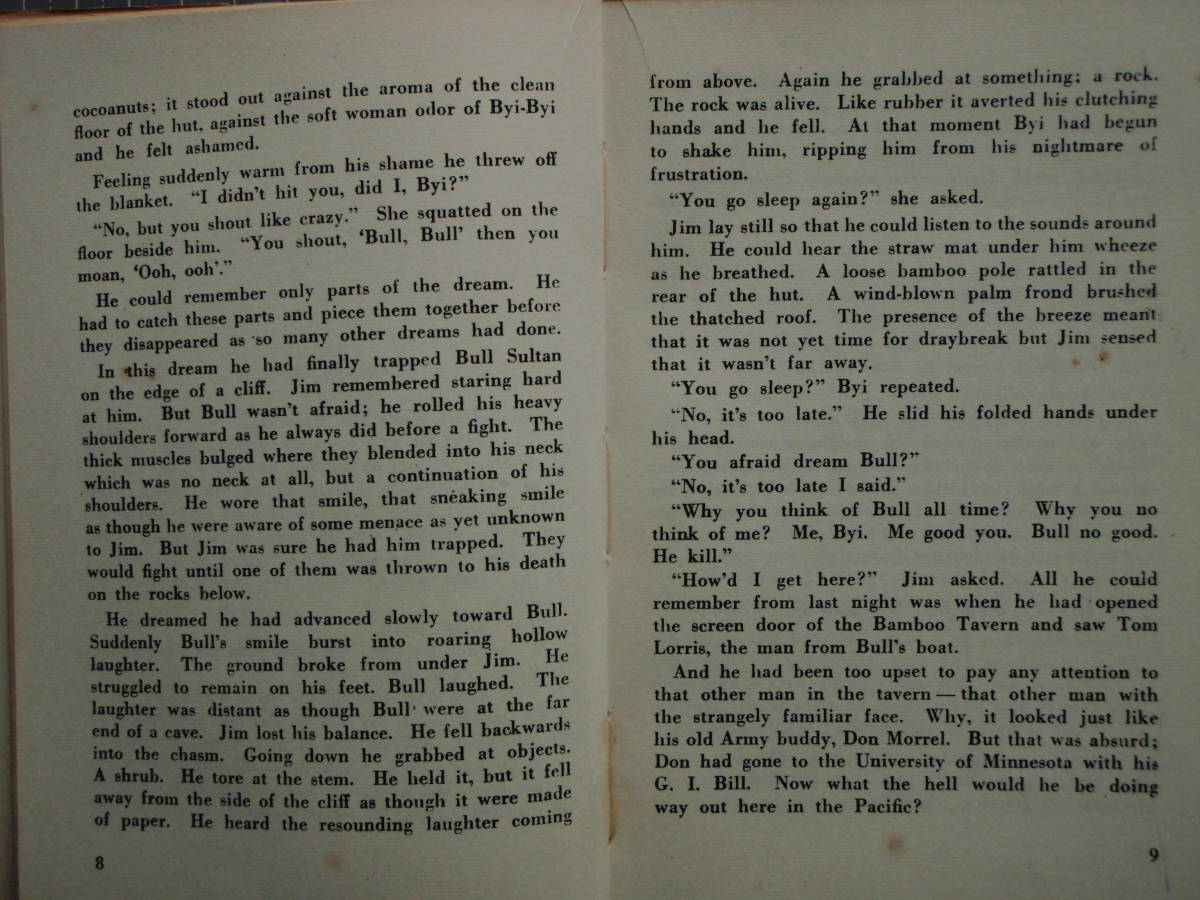 cocoanuts; it stood out against the aroma of the clean
floor of the hut, against the soft woman odor of Byi-Byi
and he felt ashamed.
Feeling suddenly warm from his shame he threw off
the blanket. "I didn't hit you, did I, Byi?"
"No, but you shout like crazy." She squatted on the
floor beside him. "You shout, 'Bull, Bull' then you
moan, 'Ooh, ooh'."
He could remember only parts of the dream. He
had to catch these parts and piece them together before
they disappeared as so many other dreams had done.
In this dream he had finally trapped Bull Sultan
on the edge of a cliff. Jim remembered staring hard
at him. But Bull wasn't afraid; he rolled his heavy
shoulders forward as he always did before a fight. The
thick muscles bulged where they blended into his neck
which was no neck at all, but a continuation of his
shoulders. He wore that smile, that sneaking smile
as though he were aware of some menace as yet unknown
to Jim. But Jim was sure he had him trapped. They
would fight until one of them was thrown to his death
on the rocks below.
He dreamed he had advanced slowly toward Bull.
Suddenly Bull's smile burst into roaring hollow
laughter. The ground broke from under Jim. He
struggled to remain on his feet. Bull laughed. The
laughter was distant as though Bull were at the far
end of a cave. Jim lost his balance. He fell backwards
into the chasm. Going down he grabbed at objects.
A shrub. He tore at the stem. He held it, but it fell
away from the side of the cliff as though it were made
of paper. He heard the resounding laughter coming
8
from above. Again he grabbed at something; a rock.
The rock was alive. Like rubber it averted his clutching
hands and he fell. At that moment Byi had begun
to shake him, ripping him from his nightmare of
frustration.
"You go sleep again?" she asked.
Jim lay still so that he could listen to the sounds around
him. He could hear the straw mat under him wheeze
as he breathed. A loose bamboo pole rattled in the
rear of the hut. A wind-blown palm frond brushed
the thatched roof. The presence of the breeze meant
that it was not yet time for draybreak but Jim sensed
that it wasn't far away.
"You go sleep?" Byi repeated.
"No, it's too late." He slid his folded hands under
his head.
"You afraid dream Bull?"
"No, it's too late I said."
"Why you think of Bull all time? Why you no
think of me? Me, Byi. Me good you. Bull no good.
He kill."
"How'd I get here?" Jim asked. All he could
remember from last night was when he had opened
the screen door of the Bamboo Tavern and saw Tom
Lorris, the man from Bull's boat.
And he had been too upset to pay any attention to
that other man in the tavern — that other man with
the strangely familiar face. Why, it looked just like
his old Army buddy, Don Morrel. But that was absurd;
Don had gone to the University of Minnesota with his
G. I. Bill. Now what the hell would he be doing
way out here in the Pacific?
9